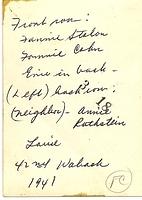 Front row:
Fannie Stalon
Tommie Cohn
Ernie in back -
(Left) back row:
(neighbor) - Annie
Rothstein
Laurie
4234 Wabash
1941
FC